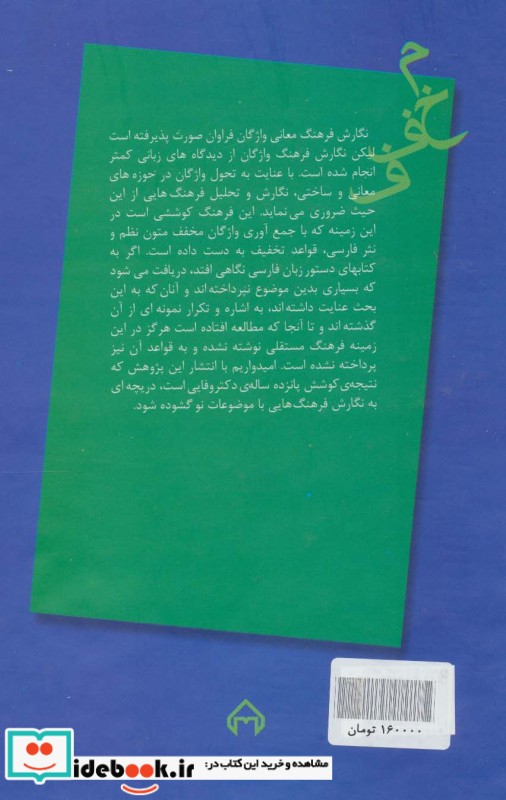 نگارش فرهنگ معانی واژگان فراوان صورت پذیرفته است
لکن نگارش فرهنگ واژگان از دیدگاه های زبانی کمتر
انجام شده است. با عنایت به تحول واژگان در حوزه های
معانی و ساختی، نگارش و تحلیل فرهنگ‌هایی از این
حیث ضروری می‌نماید. این فرهنگ کوششی است در
این زمینه که با جمع آوری واژگان مخفف متون نظم و
نثر فارسی، قواعد تخفیف به دست داده است. اگر به
کتابهای دستور زبان فارسی نگاهی افتد، دریافت می شود
که بسیاری بدین موضوع نپرداخته‌اند و آنان که به این
بحث عنایت داشته‌اند، به اشاره و تکرار نمونه ای از آن
گذشته‌اند و تا آنجا که مطالعه افتاده است هرگز در این
زمینه فرهنگ مستقلی نوشته نشده و به قواعد آن نیز
پرداخته نشده است. امیدواریم با انتشار این پژوهش که
نتیجه‌ی کوشش پانزده ساله‌ی دکتروفایی است، دریچه ای
به نگارش فرهنگ‌هایی با موضوعات نو گشوده شود.
۱۶۰۰۰۰ تومان
مشاهده و خرید این کتاب در:
idebook.ir